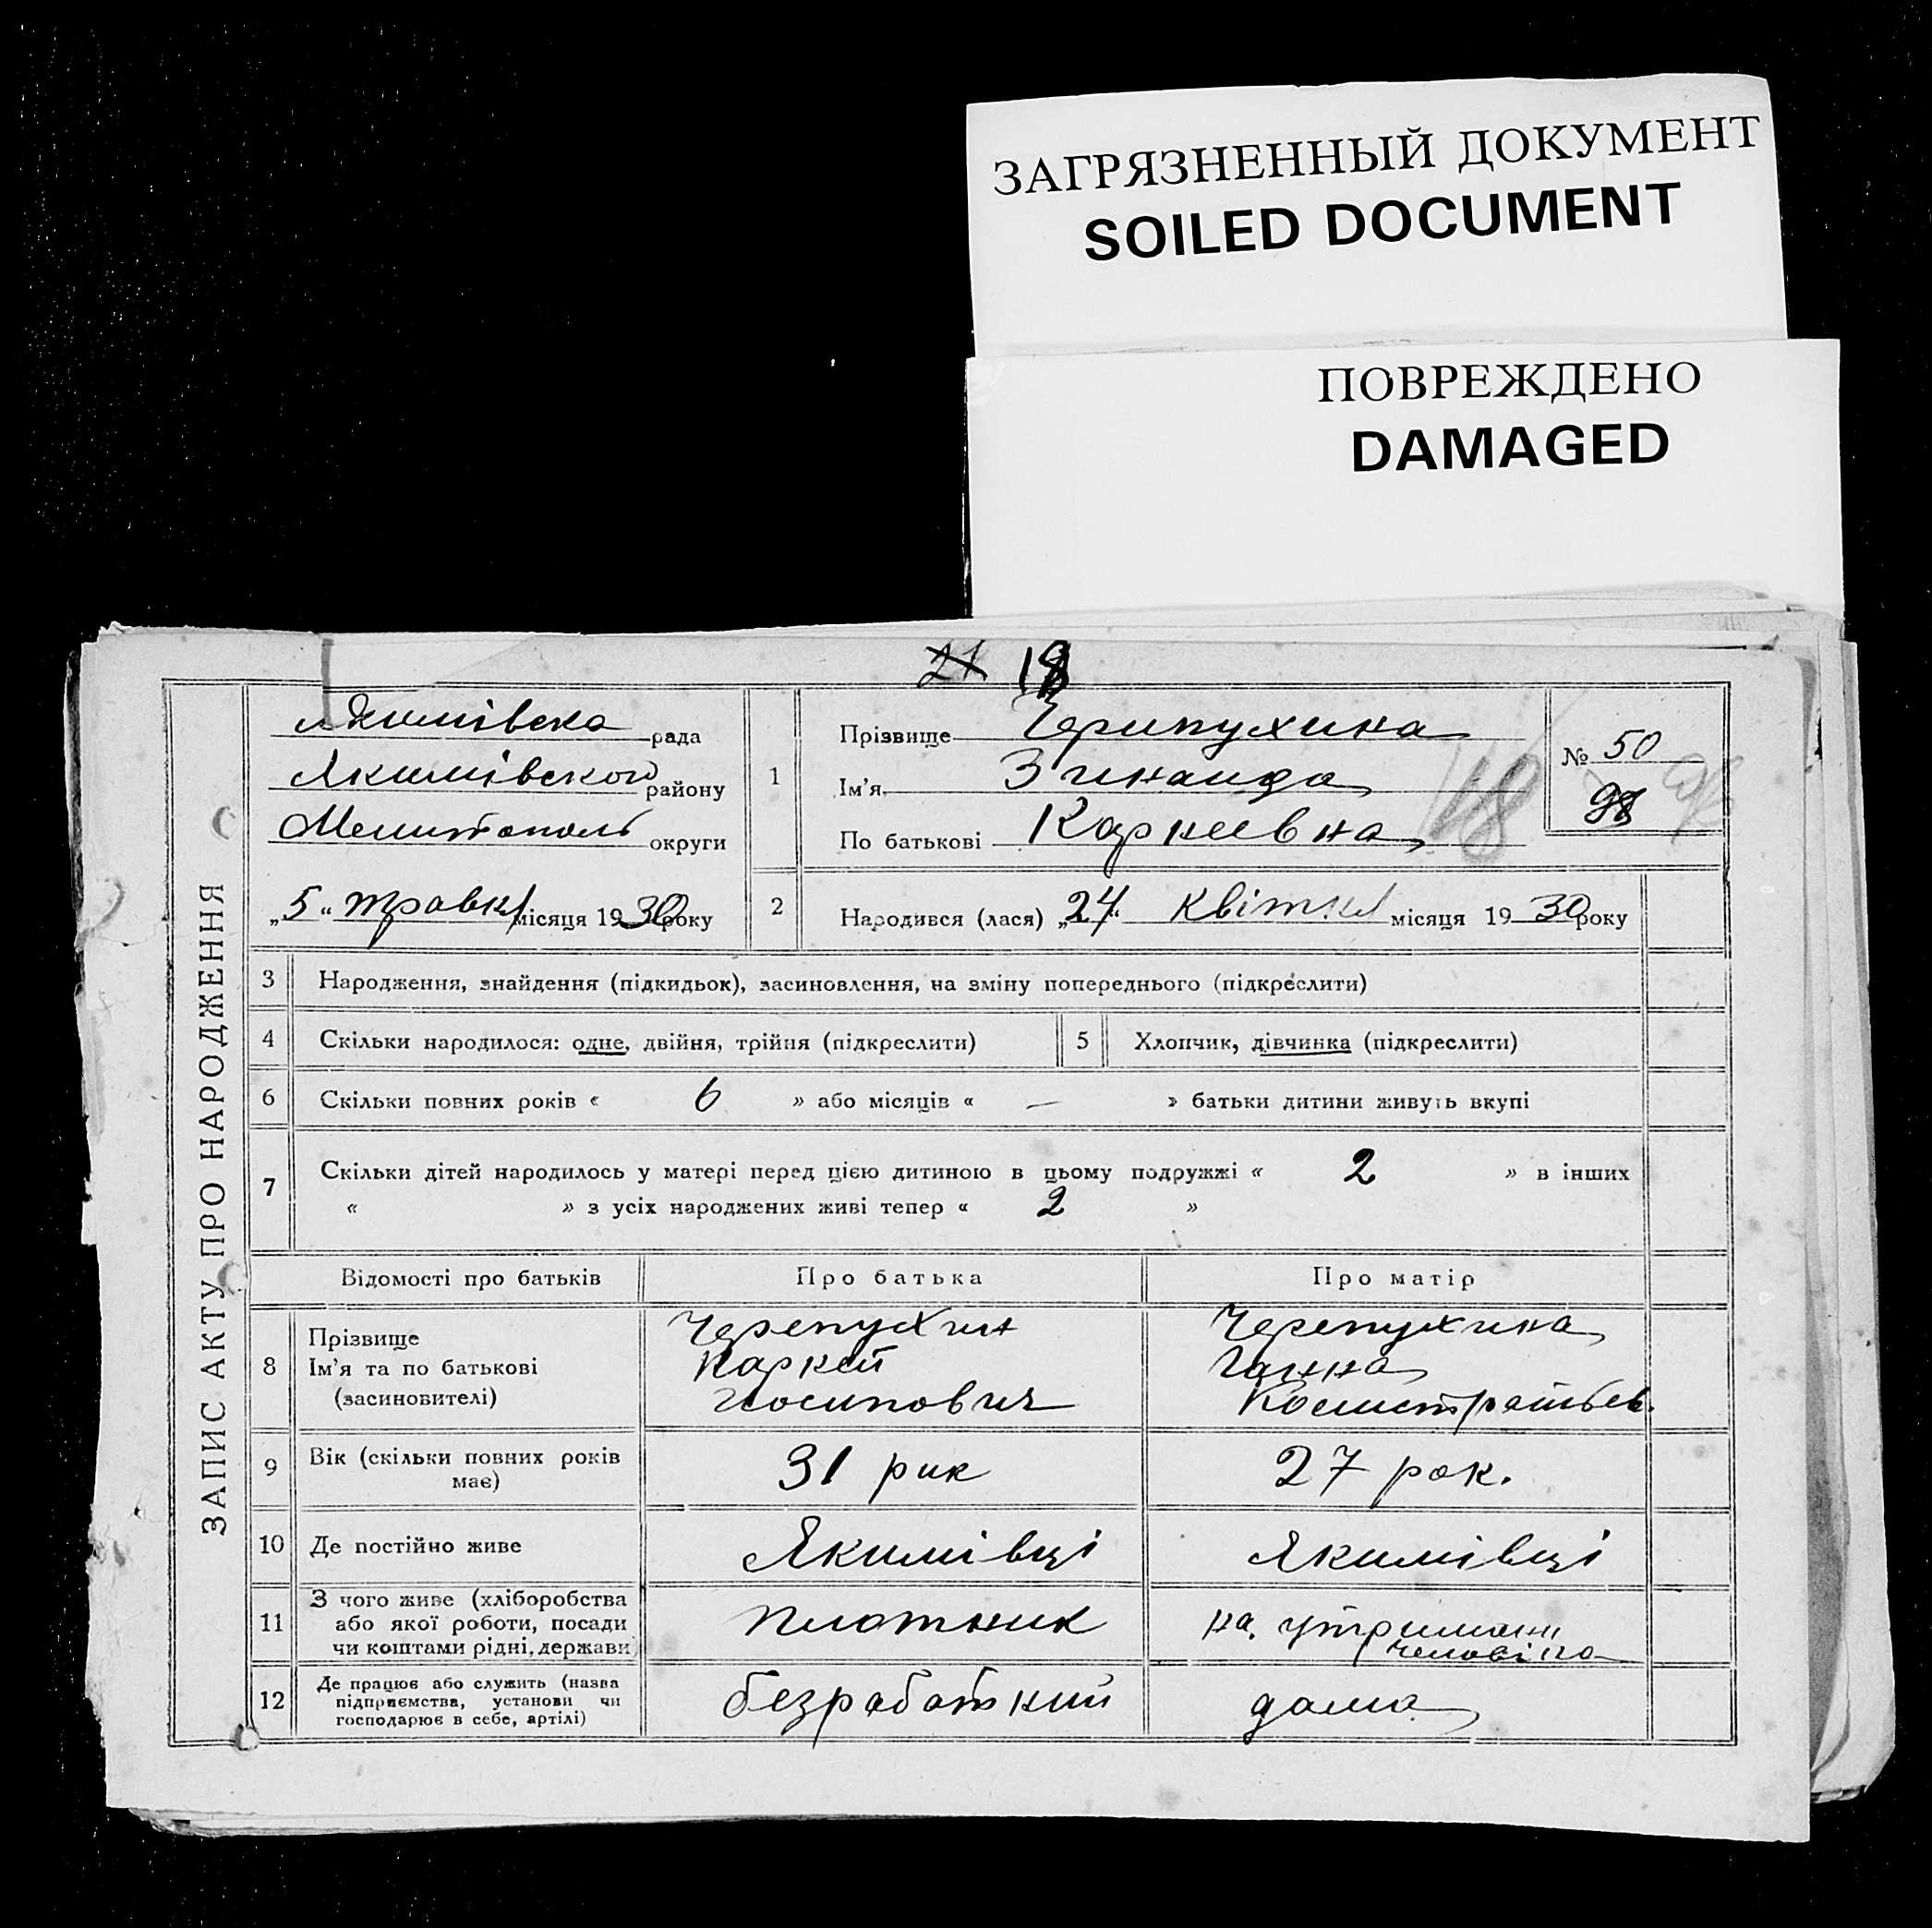 ЗАГРЯЗНЕННЫЙ ДОКУМЕНТ
SOILED DOCUMENT
ПОВРЕЖДЕНО
DAMAGED
21 18
ЗАПИС АКТУ ПРО НАРОДЖЕННЯ
Якимівска рада
Якимівского району
Мелитополь округи
„5“ травня місяця 1930 року
1
Прізвище Черипухина
Ім'я Зинаида
По батькові Каркеевна
№ 50
98
2
Народився (лася) „24“ квітня місяця 1930 року
3 Народження, знайдення (підкидьок), засиновлення, на зміну попереднього (підкреслити)
4 Скільки народилося: одне, двійня, трійня (підкреслити)
5 Хлопчик, дівчинка (підкреслити)
6 Скільки повних років « 6 » або місяців « — » батьки дитини живуть вкупі
7 Скільки дітей народилось у матері перед цією дитиною в цьому подружжі « 2 » в інших
« » з усіх народжених живі тепер « 2 »
Відомості про батьків Про батька Про матір
8
Прізвище Черепухин Черепухина
Ім'я та по батькові Каркей Ганна
(засиновителі) Иосипович
9 Вік (скільки повних років 31 рик 27 рок.
має)
10 Де постійно живе Якимівці Якимівці
11 З чого живе (хліборобства
або якої роботи, посади плотник на утримані
чи коштами рідні, держави) человіка
12 Де працює або служить (назва
підприємства, установи чи безработний дома
господарює в себе, артілі)